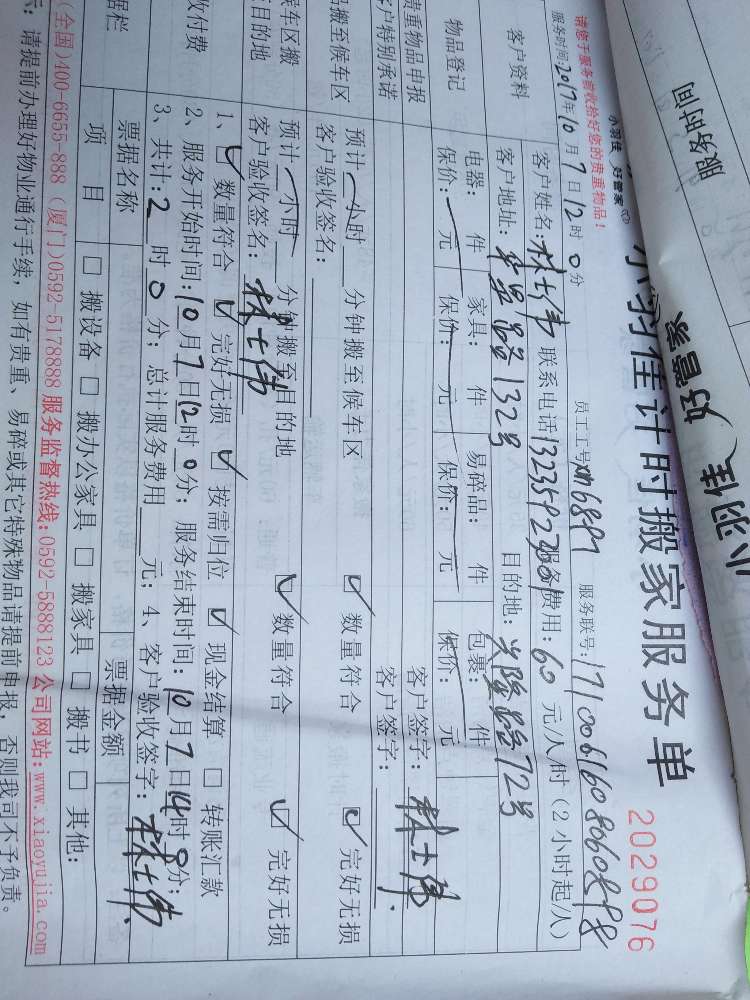 服务时间
小羽佳 好管家
小羽佳 好管家
小羽佳计时搬家服务单
2029076
请您于服务前收拾好您的贵重物品!
服务时间:2017年10月7日12时0分
员工工号:xm6897
服务联号:
客户资料
客户姓名:林士伟 联系电话 服务费用:60元/人/时(2小时起/人)
客户地址: 132号 目的地:兴隆路72号
物品登记
电器: 件 家具: 件 易碎品: 件 包裹: 件
保价: 元 保价: 元 保价: 元 保价: 元
贵重物品申报
客户签字:林士伟
客户特别承诺
客户签字:
搬至候车区
预计 小时 分钟搬至候车区 ☑ 数量符合 ☑ 完好无损
客户验收签名:
候车区搬
目的地
预计 小时 分钟搬至目的地 ☑ 数量符合 ☑ 完好无损
客户验收签名:林士伟
收付费
1、☑ 数量符合 ☑ 完好无损 ☑ 按需归位 ☑ 现金结算 □ 转账汇款
2、服务开始时间:10月7日12时0分; 服务结束时间:10月7日14时0分;
3、共计:2时0分; 总计服务费用 元; 4、客户验收签字:林士伟
据栏
票据名称 票据金额
项目 □ 搬设备 □ 搬办公家具 □ 搬家具 □ 搬书 □ 其他:
(全国)400-6655-888 (厦门)0592-5178888 服务监督热线:0592-5888123 公司网站:www.xiaoyujia.com
: 请提前办理好物业通行手续,如有贵重、易碎或其它特殊物品请提前申报,否则我司不予负责。